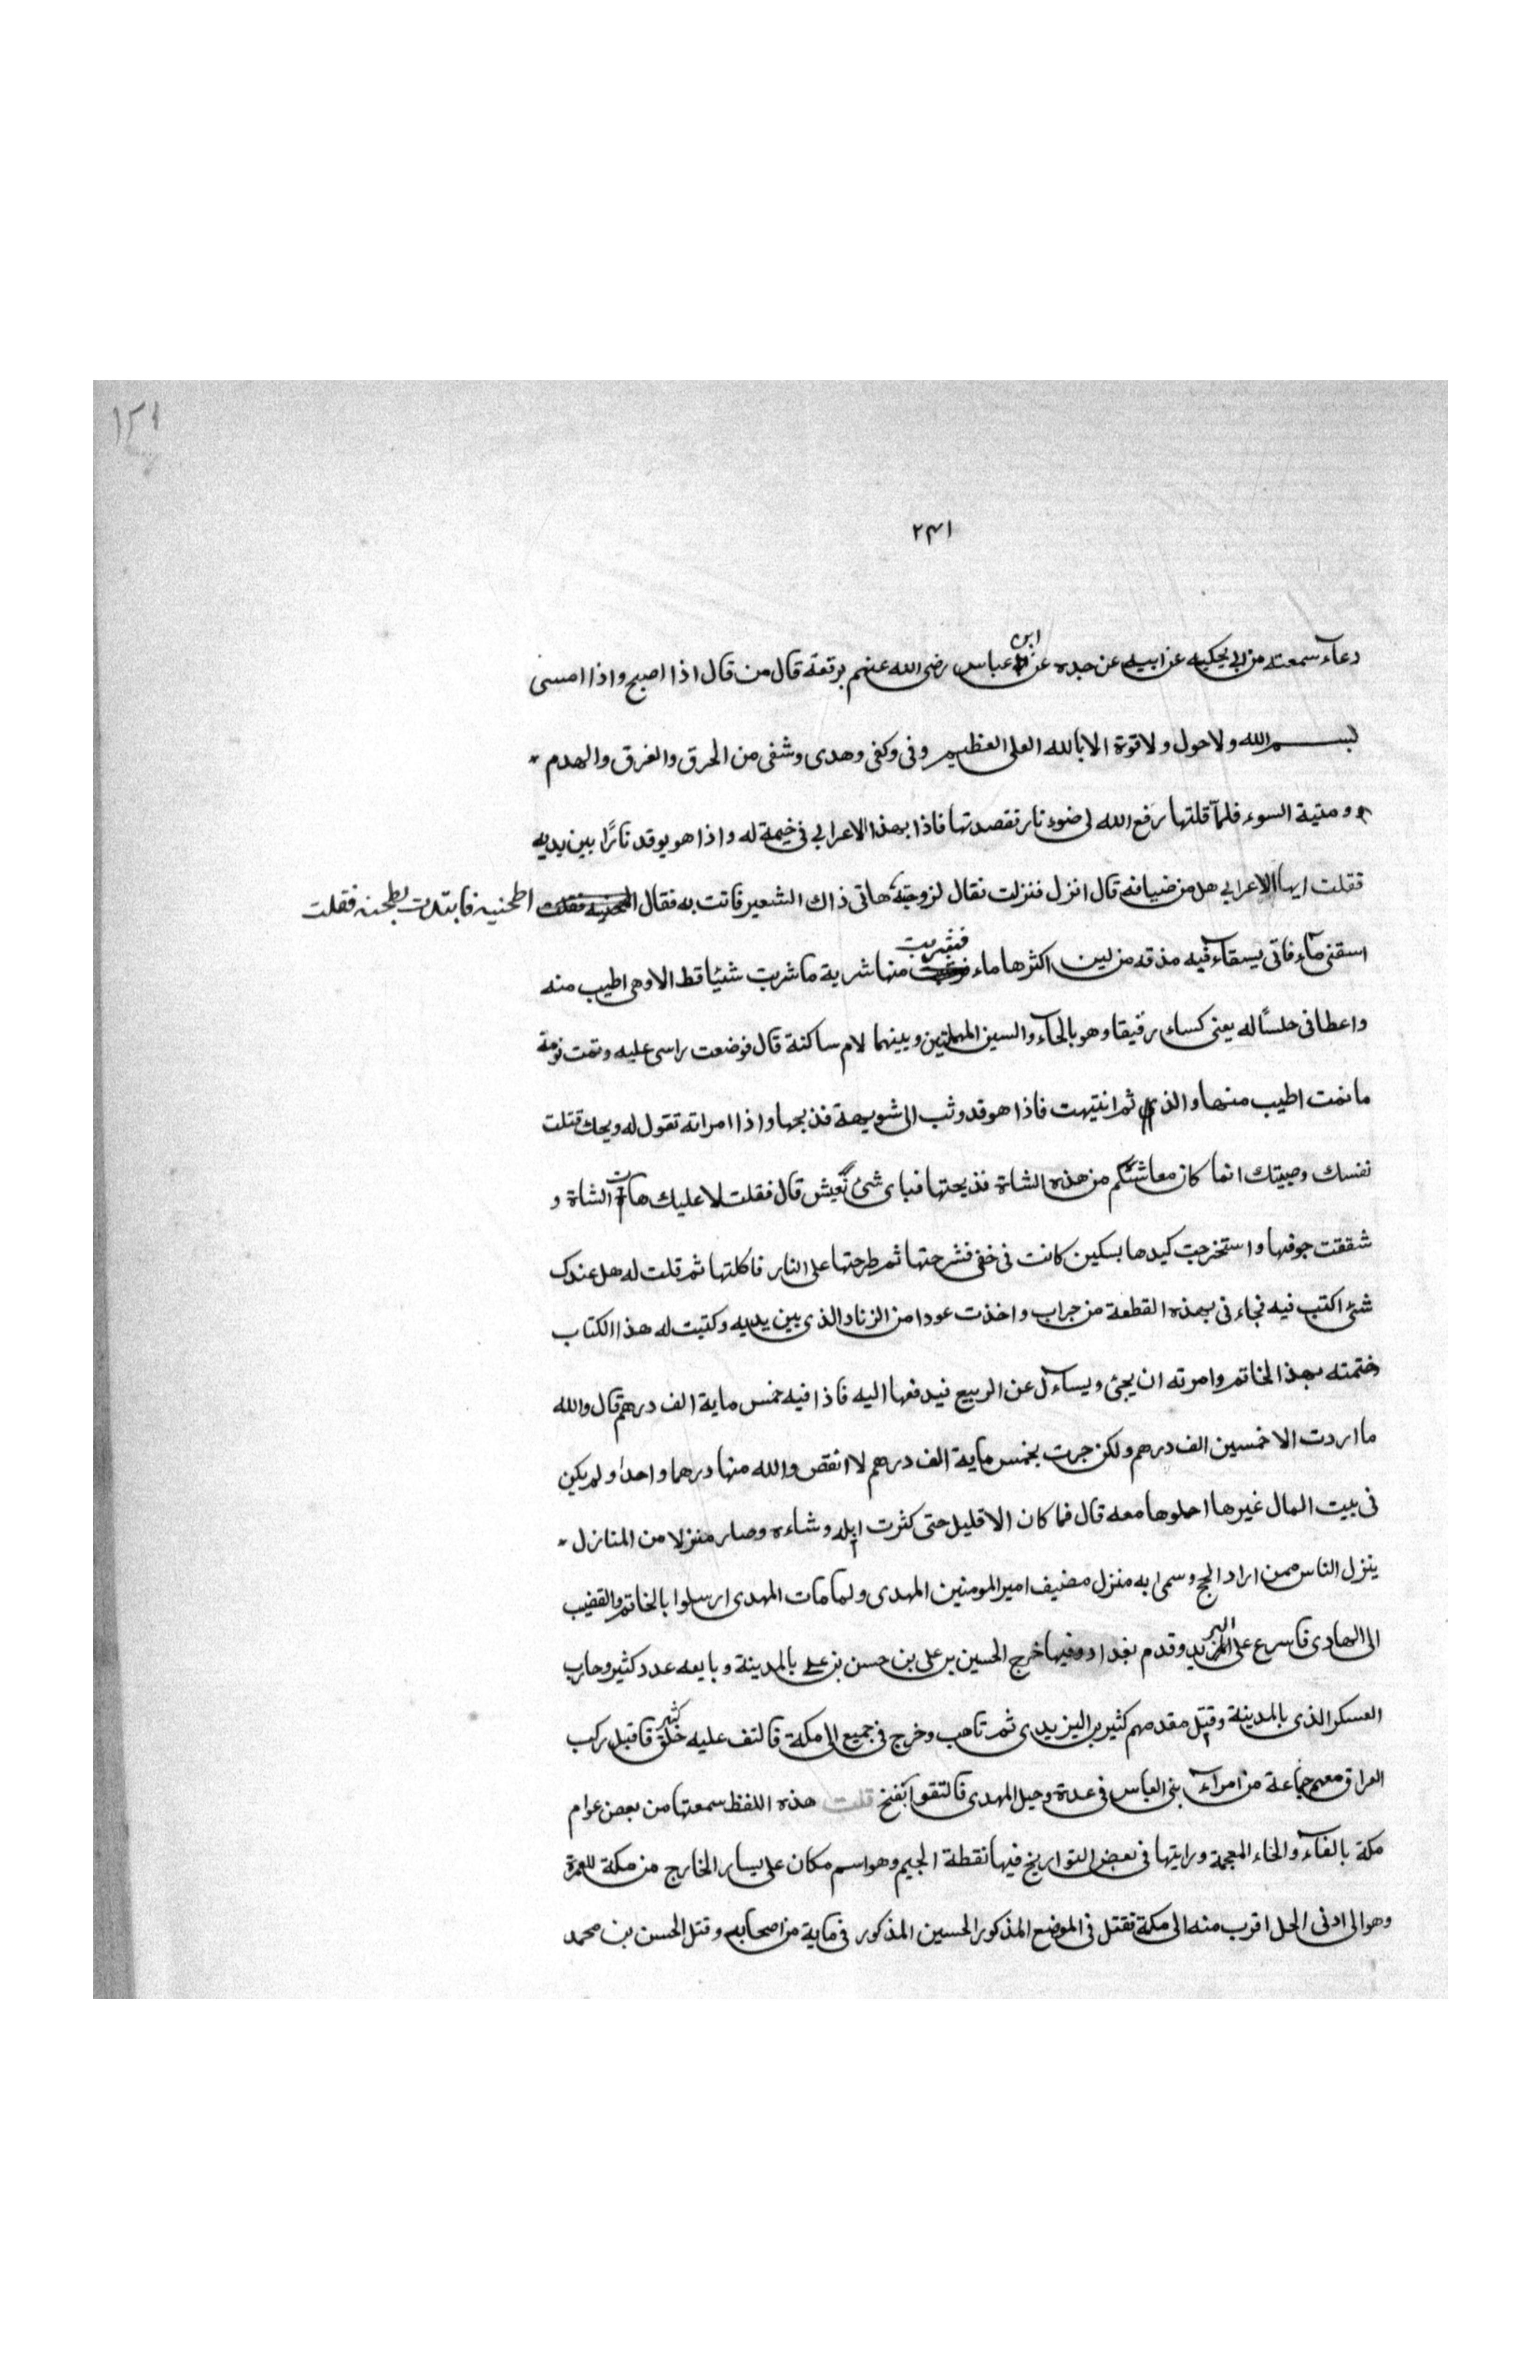 ١٢١
٢٤١
دعاء سمعته من ابي يحكيه عن ابيه عن جده عن ابن عباس رضى الله عنهم برقعة قال من قال اذا اصبح واذا امسى
بسم الله ولا حول ولا قوة الا بالله العلى العظيم وفى وكفى وهدى وشفى من الحرق والغرق والهدم
وميتة السوء فلمّا قلتها رفع الله لى ضوء نار نقصدتها فاذا بهذا الاعرابي فى خيمة له واذا هو يوقد نارًا بين يديه
فقلت ايها الاعرابي هل من ضيافة قال انزل فنزلت نقال لزوجته هاتى ذاك الشعير فاتت به فقال اطحنيه فابتدت بطحنه فقلت
اسقنى ماء فاتى بسقاء فيه مذقه من لبن اكثرها ماء فشربت منها شربة ما شربت شئيا قط الا وهى اطيب منه
واعطانى حلسًا له يعنى كساء رقيقا وهو بالحاء والسين المهملتين وبينهما لام ساكنة قال فوضعت راسى عليه ونمت نومة
ما نمت اطيب منها والذ ثم انتبهت فاذا هو قد وثب الى شويهة فذبحها واذا امراته تقول له ويحك قتلت
نفسك وصبيتك انما كان معاشكم من هذه الشاة فذبحتها فباى شئ نعيش قال فقلت لا عليك هات الشاة و
شققت جوفها واستخرجت كبدها بسكين كانت فى خفى فشرحتها ثم طرحتها على النار فاكلتها ثم قلت له هل عندك
شئ اكتب فيه فجاء نى بهذه القطعة من جراب واخذت عودا من الزناد الذى بين يديه وكتبت له هذا الكتاب
ختمته بهذا الخاتم وامرته ان يجئ ويساءل عن الربيع فيدفعها اليه فاذا فيه خمس ماية الف درهم قال والله
ما اردت الا خمسين الف درهم ولكن جرت بخمس ماية الف درهم لا انقص والله منها درهما واحدا ولم يكن
فى بيت المال غيرها احملوها معه قال فما كان الا قليل حتى كثرت ابله وشاءه وصار منزلا من المنازل
ينزل الناس ممن اراد الحج وسمى به منزل مضيف امير المومنين المهدى ولما مات المهدى ارسلوا بالخاتم والقضيب
الى الهادى فاسرع على البريد وقدم بغداد وفيها خرج الحسين بن على بن حسن بن على بالمدينة وبايعه عدد كثير وحارب
العسكر الذى بالمدينة وقتل مقدمهم كثير بن اليزيدى ثم تاهب وخرج فى جميع الى مكة فالتف عليه خلق كثير فاقبل ركب
العراق معهم جماعة من امراء بنى العباس فى عدة وخيل المهدى فالتقوا بفخ قلت هذه اللفظ سمعتها من بعض عوام
مكة بالفاء والخاء المعجمة ورايتها فى بعض التواريخ فيها نقطة الجيم وهو اسم مكان على يسار الخارج من مكة للعمرة
وهو الى ادنى الحل اقرب منه الى مكة نقتل فى الموضع المذكور الحسين المذكور فى ماية من اصحابه وقتل الحسن بن محمد